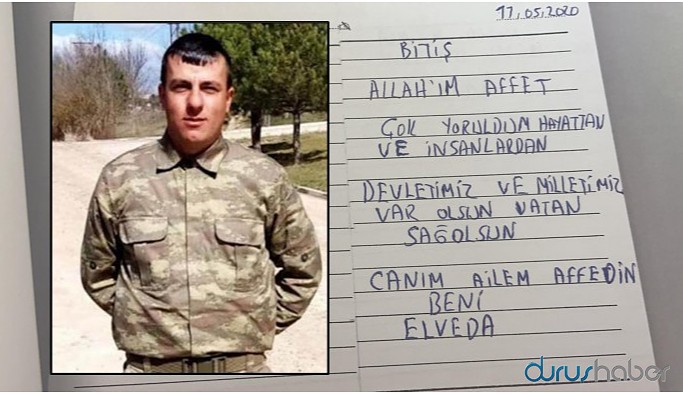 11.05.2020
BİTİŞ
ALLAH'IM AFFET
ÇOK YORULDUM HAYATTAN
VE İNSANLARDAN
DEVLETİMİZ VE MİLLETİMİZ
VAR OLSUN VATAN
SAĞOLSUN
CANIM AİLEM AFFEDİN
BENİ
ELVEDA
durushaber